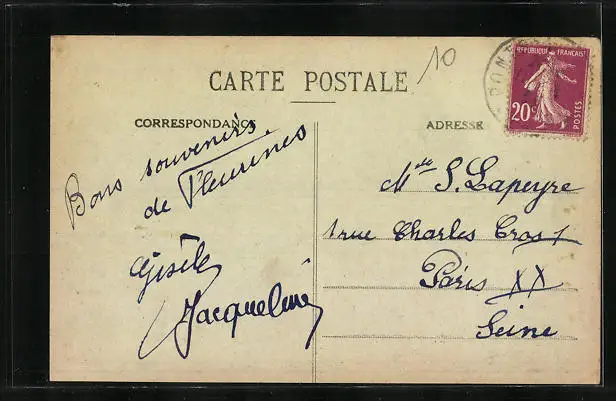 10
CARTE POSTALE
RÉPUBLIQUE FRANÇAISE
20c
POSTES
PONT
CORRESPONDANCE
ADRESSE
Bons souvenirs
de Fleurines
Gisèle
Jacqueline
Melle S. Lapeyre
1 rue Charles Cros 1
Paris XX
Seine